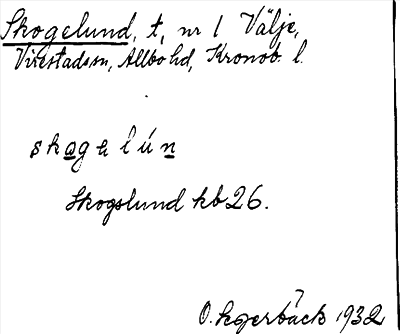 Skogelund, t, nr 1 Välje,
Virestads sn, Allbo hd, Kronob. l.
skogelún
Skogslund kb 26.
O. 1932